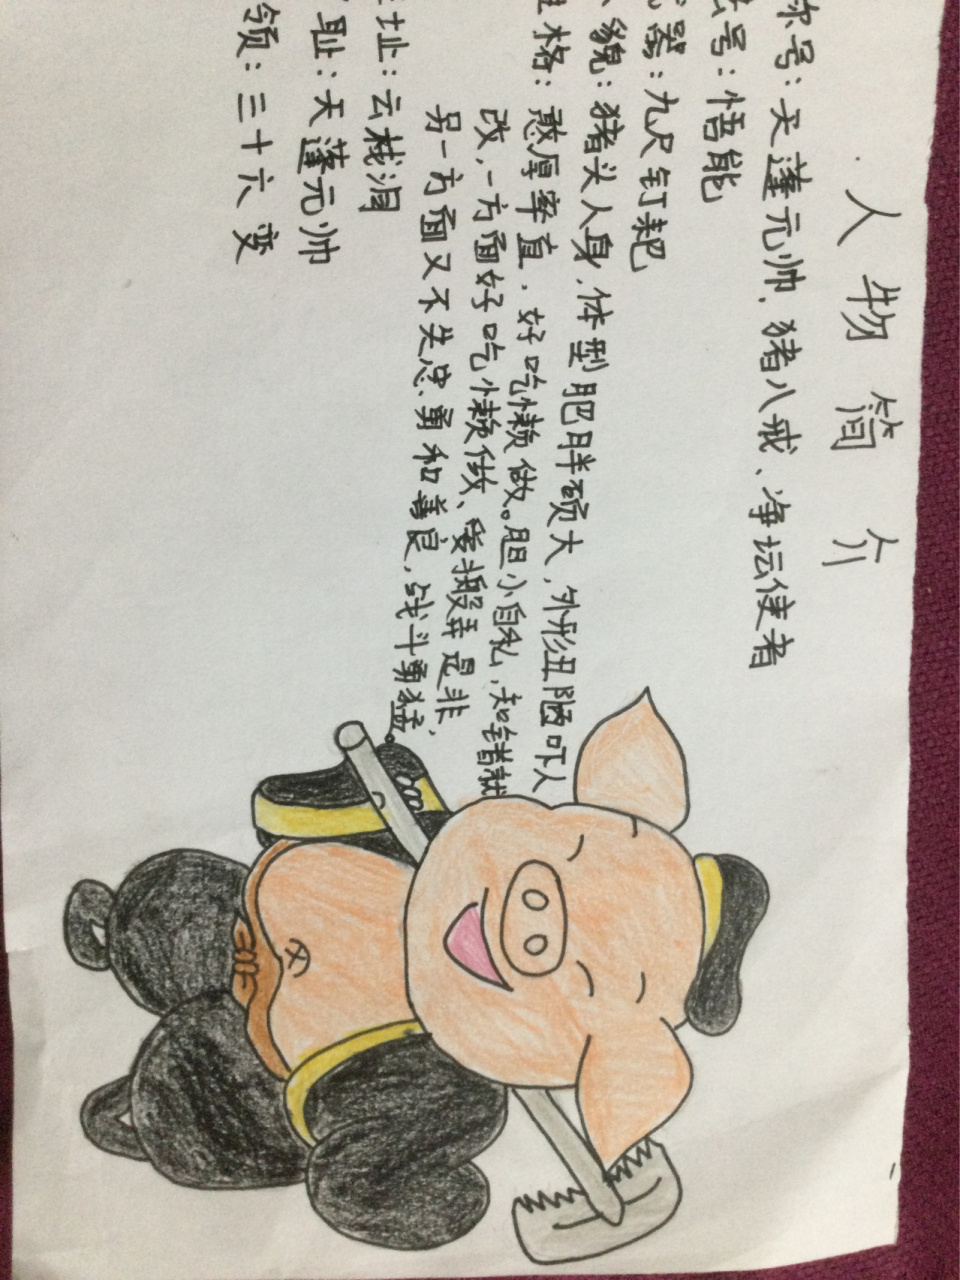 人物简介
号：天蓬元帅、猪八戒、净坛使者
号：悟能
器：九尺钉耙
貌：猪头人身，体型肥胖硕大，外形丑陋吓人
格：憨厚率直，好吃懒做。胆小自私，知错就
改，一方面好吃懒做、爱搬弄是非，
另一方面又不失忠勇和善良，战斗勇猛。
址：云栈洞
耻：天蓬元帅
领：三十六变